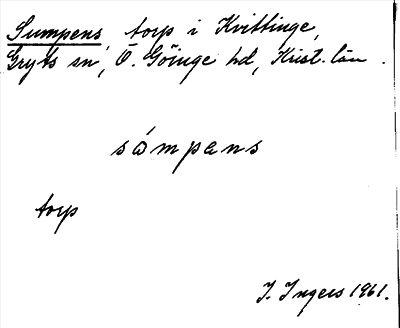 Sumpens, torp i Kvittinge,
Gryts sn, Ö. Göinge hd, Krist. län.
sómpens
torp
I. Ingers 1961.